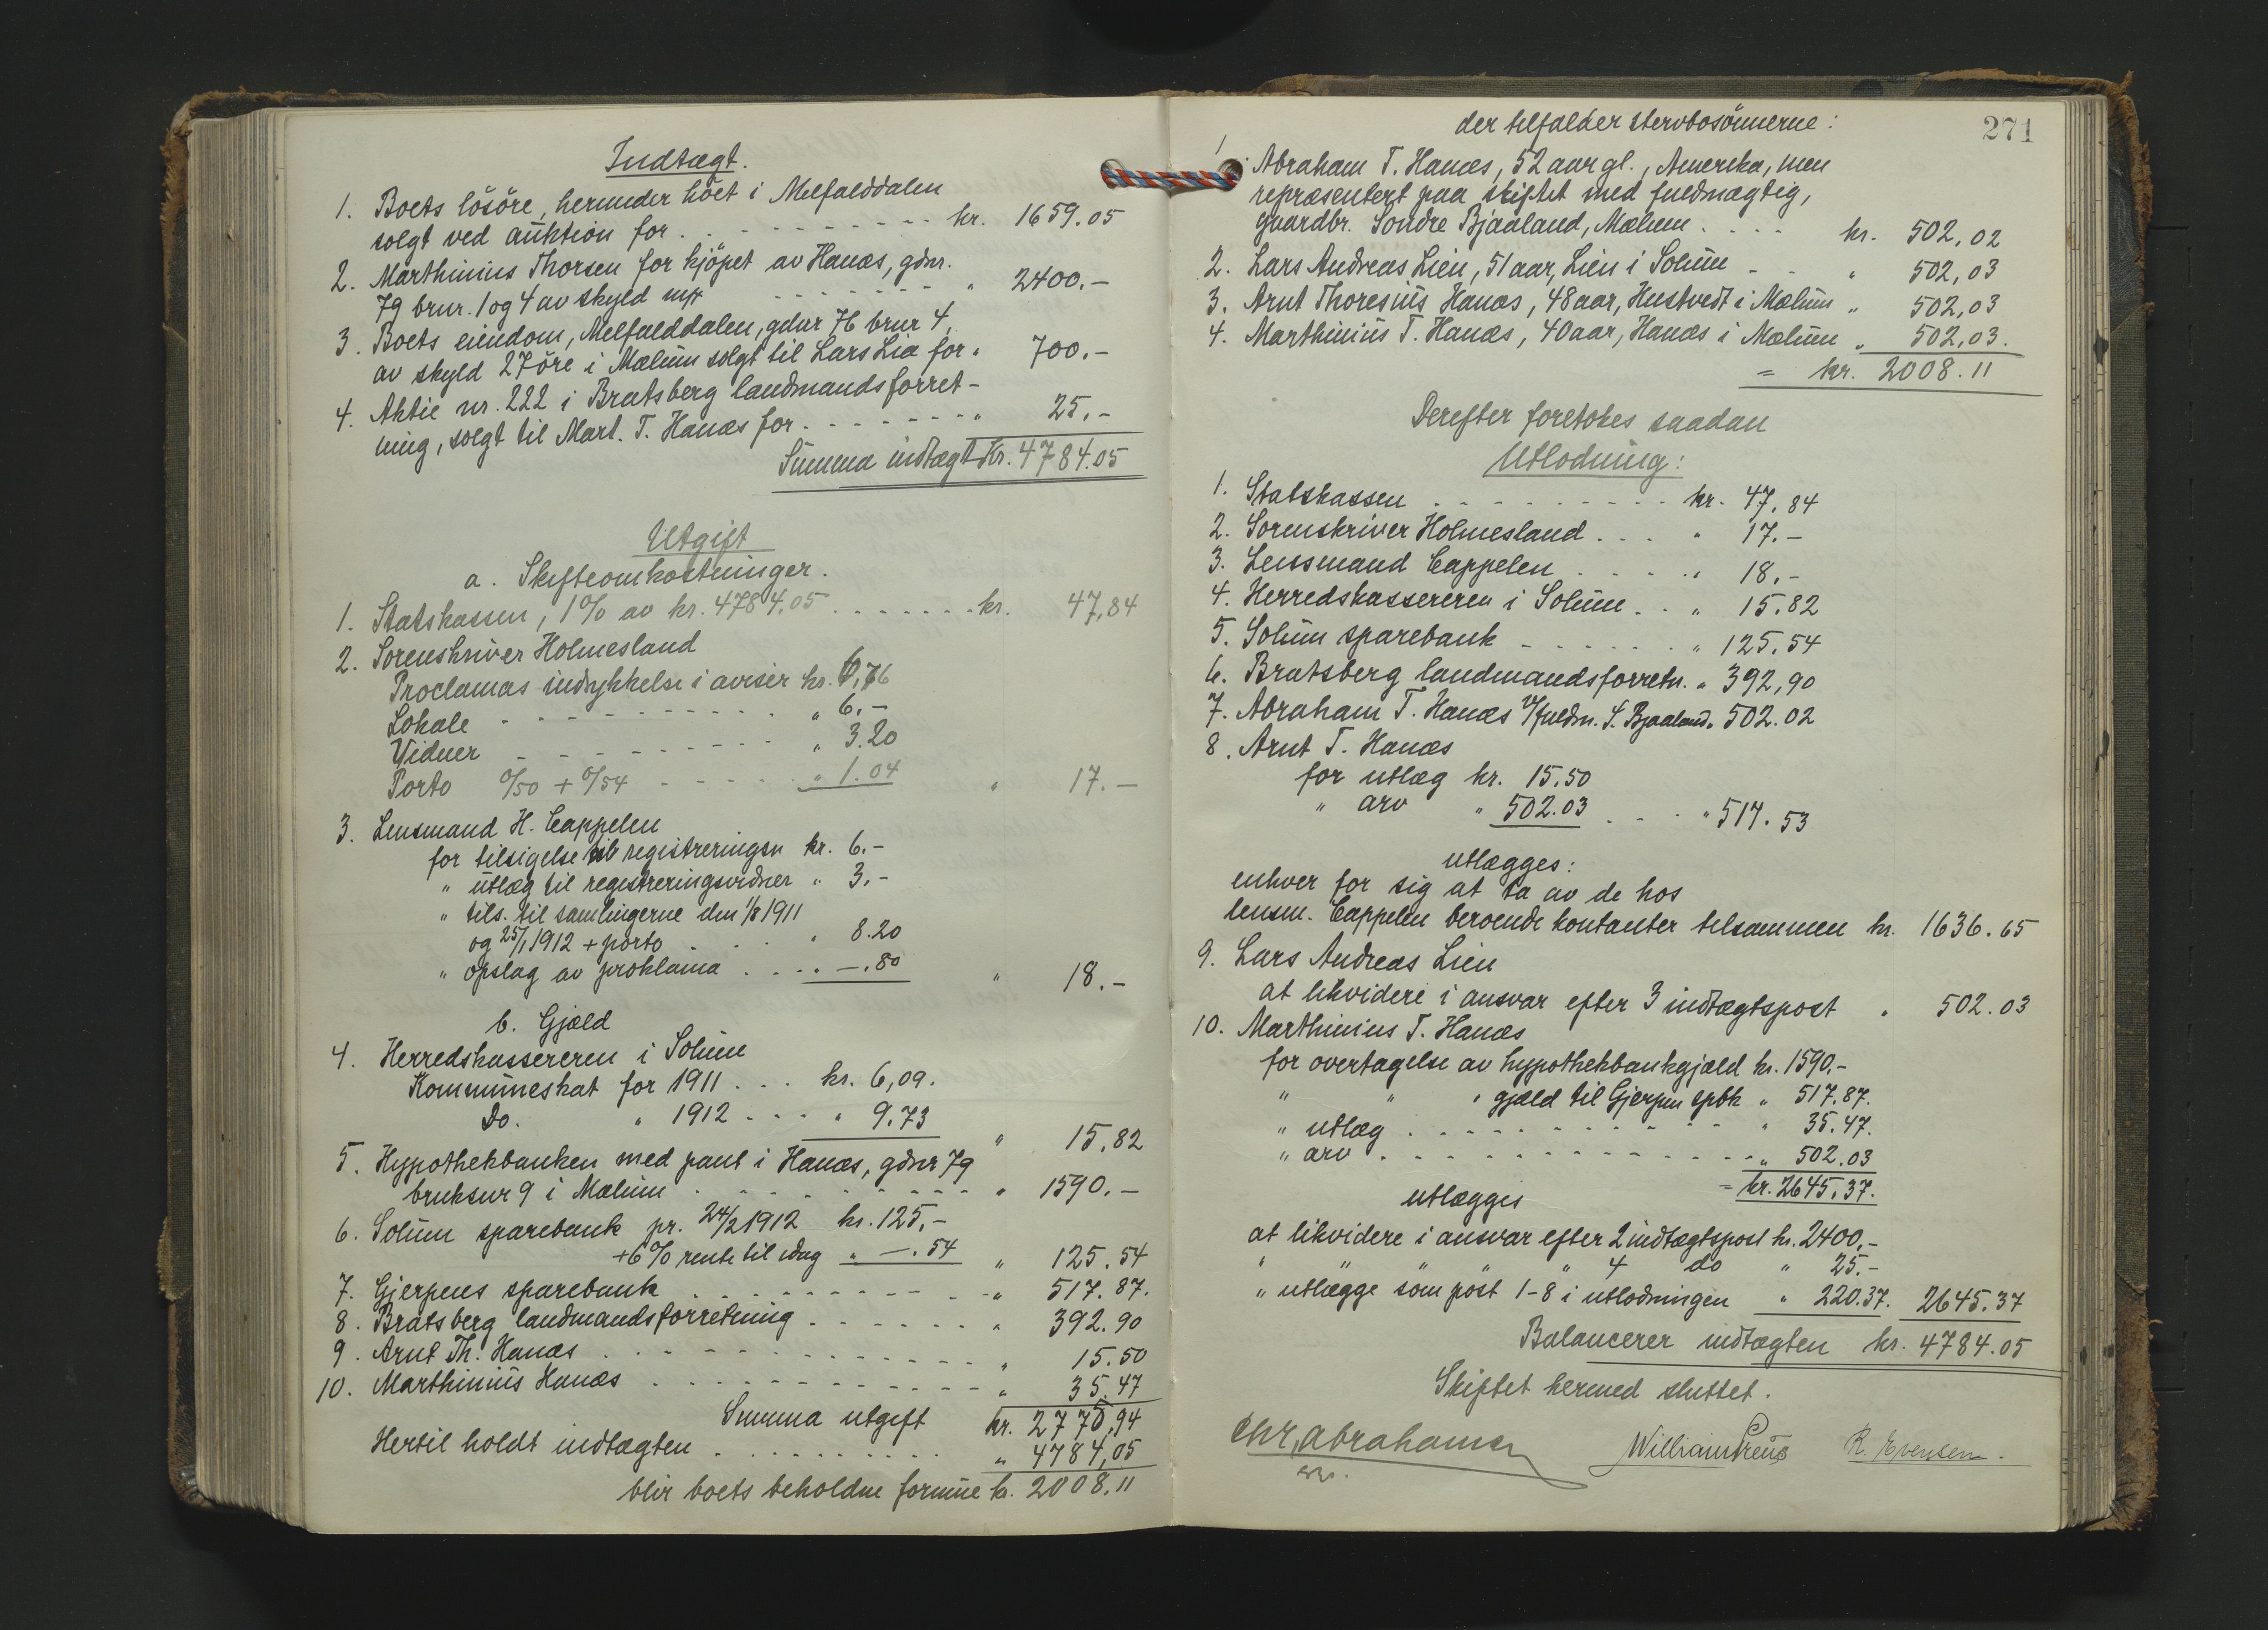 Indtægt.
1. Boets lösöre, herunder höet i Melfalddalen
solgt ved auktion for . . . . . . . . . kr. 1659.05
2. Marthinius Thorsen for kjöpet av Hanæs, gdnr.
79 brnr. 1 og 4 av skyld . . . . . . . " 2400.-
3. Boets eiendom, Melfalddalen, gdnr 76 brnr 4,
av skyld 27 öre i Mælum solgt til Lars Lia for " 700.-
4. Aktie nr. 222 i Bratsberg landmandsforret-
ning, solgt til Mart. T. Hanæs for . . . . . . " 25.-
Summa indtægt Kr. 4784.05
Utgift
a. Skifteomkostninger.
1. Statskassen, 1% av kr. 4784,05 . . . . . . . kr. 47,84
2. Sorenskriver Holmesland
Proclamas indrykkelse i aviser kr. 6,76
Lokale . . . . . . . . . " 6.-
Vidner . . . . . . . . . " 3.20
Porto 0/50 + 0/54 . . . . . " 1.04 " 17.-
3. Lensmand H. Cappelen
for tilsigelse til registreringen kr. 6.-
" utlæg til registreringsvidner " 3.-
" tils. til samlingerne den 1/8 1911
og 25/1 1912 + porto . . . . " 8.20
" opslag av proklama . . . . -.80 " 18.-
b. Gjæld
4. Herredskassereren i Solum
Kommuneskat for 1911 . . . kr. 6,09.
Do. " 1912 . . . " 9.73 " 15,82
5. Hypothekbanken med pant i Hanæs, gdnr 79
bruksnr 9 i Mælum . . . . . . . . . " 1590.-
6. Solum sparebank pr. 24/2 1912 kr. 125.-
+6% rente til idag " -.54 " 125.54
7. Gjerpens sparebank . . . . . . . . . " 517.87.
8. Bratsberg landmandsforretning . . . . . . " 392.90
9. Arnt Th. Hanæs . . . . . . . . . . . " 15.50
10. Marthinius Hanæs . . . . . . . . . . " 35.47
Summa utgift kr. 2775,94
Hertil holdt indtægten . . . . . . . . . " 4784,05
blir boets beholdne formue kr. 2008.11
271
der tilfalder stervbosönnerne:
1. Abraham T. Hanæs, 52 aar gl., Amerika, men
repræsentert paa skiftet med fuldmægtig,
gaardbr. Söndre Bjaaland, Mælum . . . . kr. 502,02
2. Lars Andreas Lien, 51 aar, Lien i Solum - - " 502,03
3. Arnt Thoresius Hanæs, 48 aar, Hustvedt i Mælum " 502,03
4. Marthinius T. Hanæs, 40 aar, Hanæs i Mælum " 502,03.
= kr. 2008.11
Derefter foretokes saadan
Utlodning:
1. Statskassen . . . . . . . . . . kr. 47,84
2. Sorenskriver Holmesland . . . " 17.-
3. Lensmand Cappelen . . . . . " 18.-
4. Herredskassereren i Solum . . " 15.82
5. Solum sparebank . . . . . . " 125.54
6. Bratsberg landmandsforretn. " 392,90
7. Abraham T. Hanæs v/fuldm. S. Bjaaland " 502.02
8. Arnt T. Hanæs
for utlæg kr. 15.50
" arv " 502.03 . . . " 517.53
utlægges:
enhver for sig at ta av de hos
lensm. Cappelen beroende kontanter tilsammen kr. 1636.65
9. Lars Andreas Lien
at likvidere i ansvar efter 3 indtægtspost " 502.03
10. Marthinius T. Hanæs
for overtagelse av hypothekbankgjæld kr. 1590.-
" " " gjæld til Gjerpen spbk " 517.87.
" utlæg . . . . . . . . . . " 35.47.
" arv . . . . . . . . . . . " 502.03
= kr. 2645.37.
utlægges
at likvidere i ansvar efter 2 indtægtspost kr. 2400.-
" " " " 4 do " 25.-
" utlægge som post 1-8 i utlodningen " 220.37. 2645.37
Balancerer indtægten kr. 4784.05
Skiftet hermed sluttet.
Chr. Abrahamsen William Preus R. Evensen.